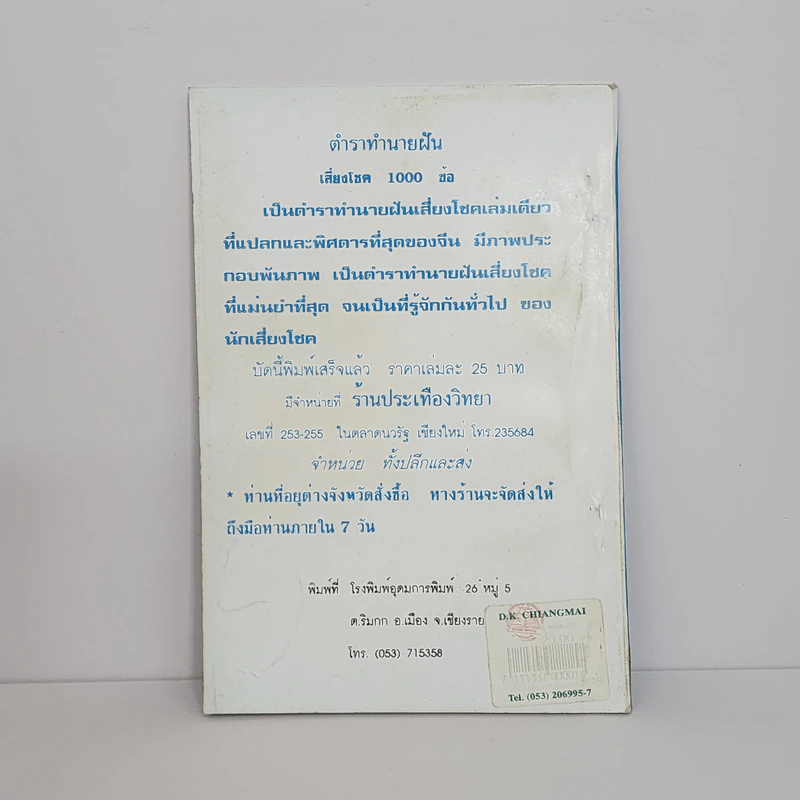 ตำราทำนายฝัน
เสี่ยงโชค 1000 ข้อ
เป็นตำราทำนายฝันเสี่ยงโชคเล่มเดียว
ที่แปลกและพิศดารที่สุดของจีน มีภาพประ
กอบพันภาพ เป็นตำราทำนายฝันเสี่ยงโชค
ที่แม่นยำที่สุด จนเป็นที่รู้จักกันทั่วไป ของ
นักเสี่ยงโชค
บัดนี้พิมพ์เสร็จแล้ว ราคาเล่มละ 25 บาท
มีจำหน่ายที่ ร้านประเทืองวิทยา
เลขที่ 253-255 ในตลาดนวรัฐ เชียงใหม่ โทร.235684
จำหน่วย ทั้งปลีกและส่ง
* ท่านที่อยู่ต่างจังหวัดสั่งซื้อ ทางร้านจะจัดส่งให้
ถึงมือท่านภายใน 7 วัน
พิมพ์ที่ โรงพิมพ์อุดมการพิมพ์ 26 หมู่ 5
ต.ริมกก อ.เมือง จ.เชียงราย
โทร. (053) 715358
D.K. CHIANGMAI
Tel. (053) 206995-7